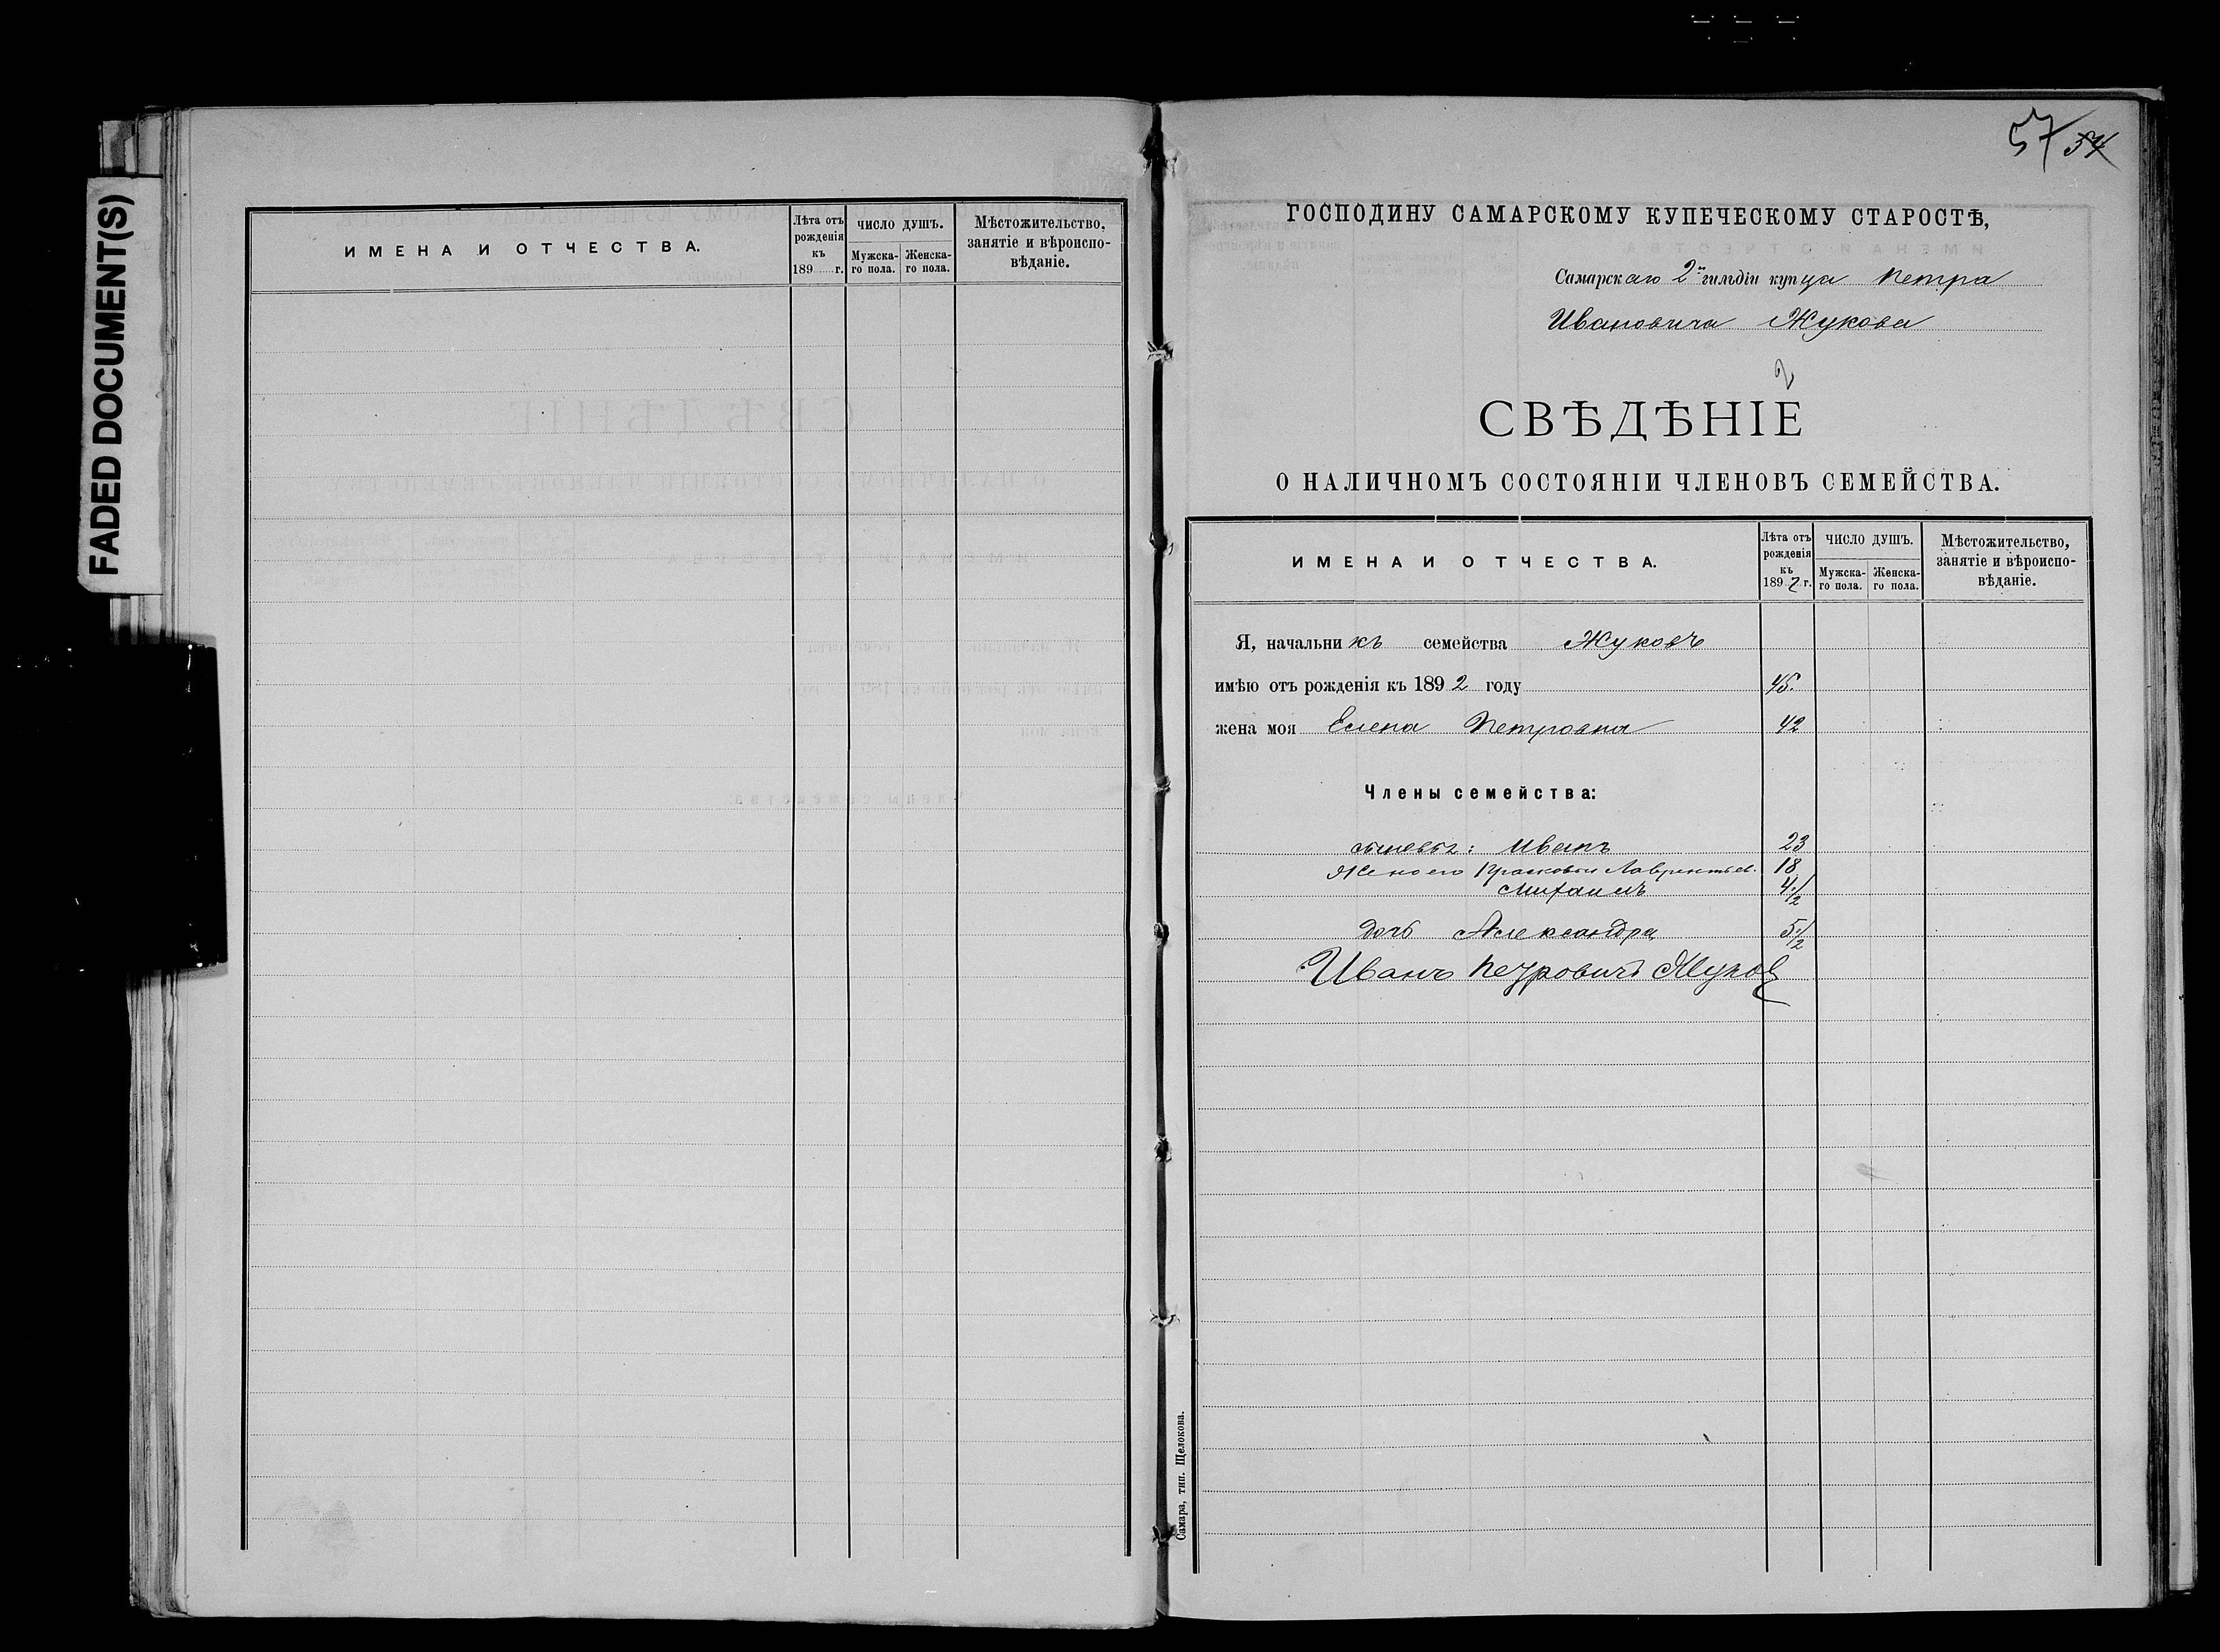 FADED DOCUMENT(S)
ИМЕНА И ОТЧЕСТВА.
Лѣта отъ рожденія къ 189 г.
ЧИСЛО ДУШЪ.
Мужска-го пола.
Женска-го пола.
Мѣстожительство, занятіе и вѣроиспо-вѣданіе.
57 34
ГОСПОДИНУ САМАРСКОМУ КУПЕЧЕСКОМУ СТАРОСТѢ,
Самарскаго 2й гильдіи купца Петра
Ивановича Жукова
2
СВѢДѢНІЕ
О НАЛИЧНОМЪ СОСТОЯНІИ ЧЛЕНОВЪ СЕМЕЙСТВА.
ИМЕНА И ОТЧЕСТВА.
Лѣта отъ рожденія къ 1892 г.
ЧИСЛО ДУШЪ.
Мужска-го пола.
Женска-го пола.
Мѣстожительство, занятіе и вѣроиспо-вѣданіе.
Я, начальникъ семейства Жуковъ
имѣю отъ рожденія къ 1892 году 45.
жена моя Елена Петровна 42
Члены семейства:
Иванъ 23
Жена его Лаврентьев. 18
Михаилъ 4 1/2
дочь Александра 5 1/2
Иванъ Петровичъ Жуков
Самара, тип. Щелокова.